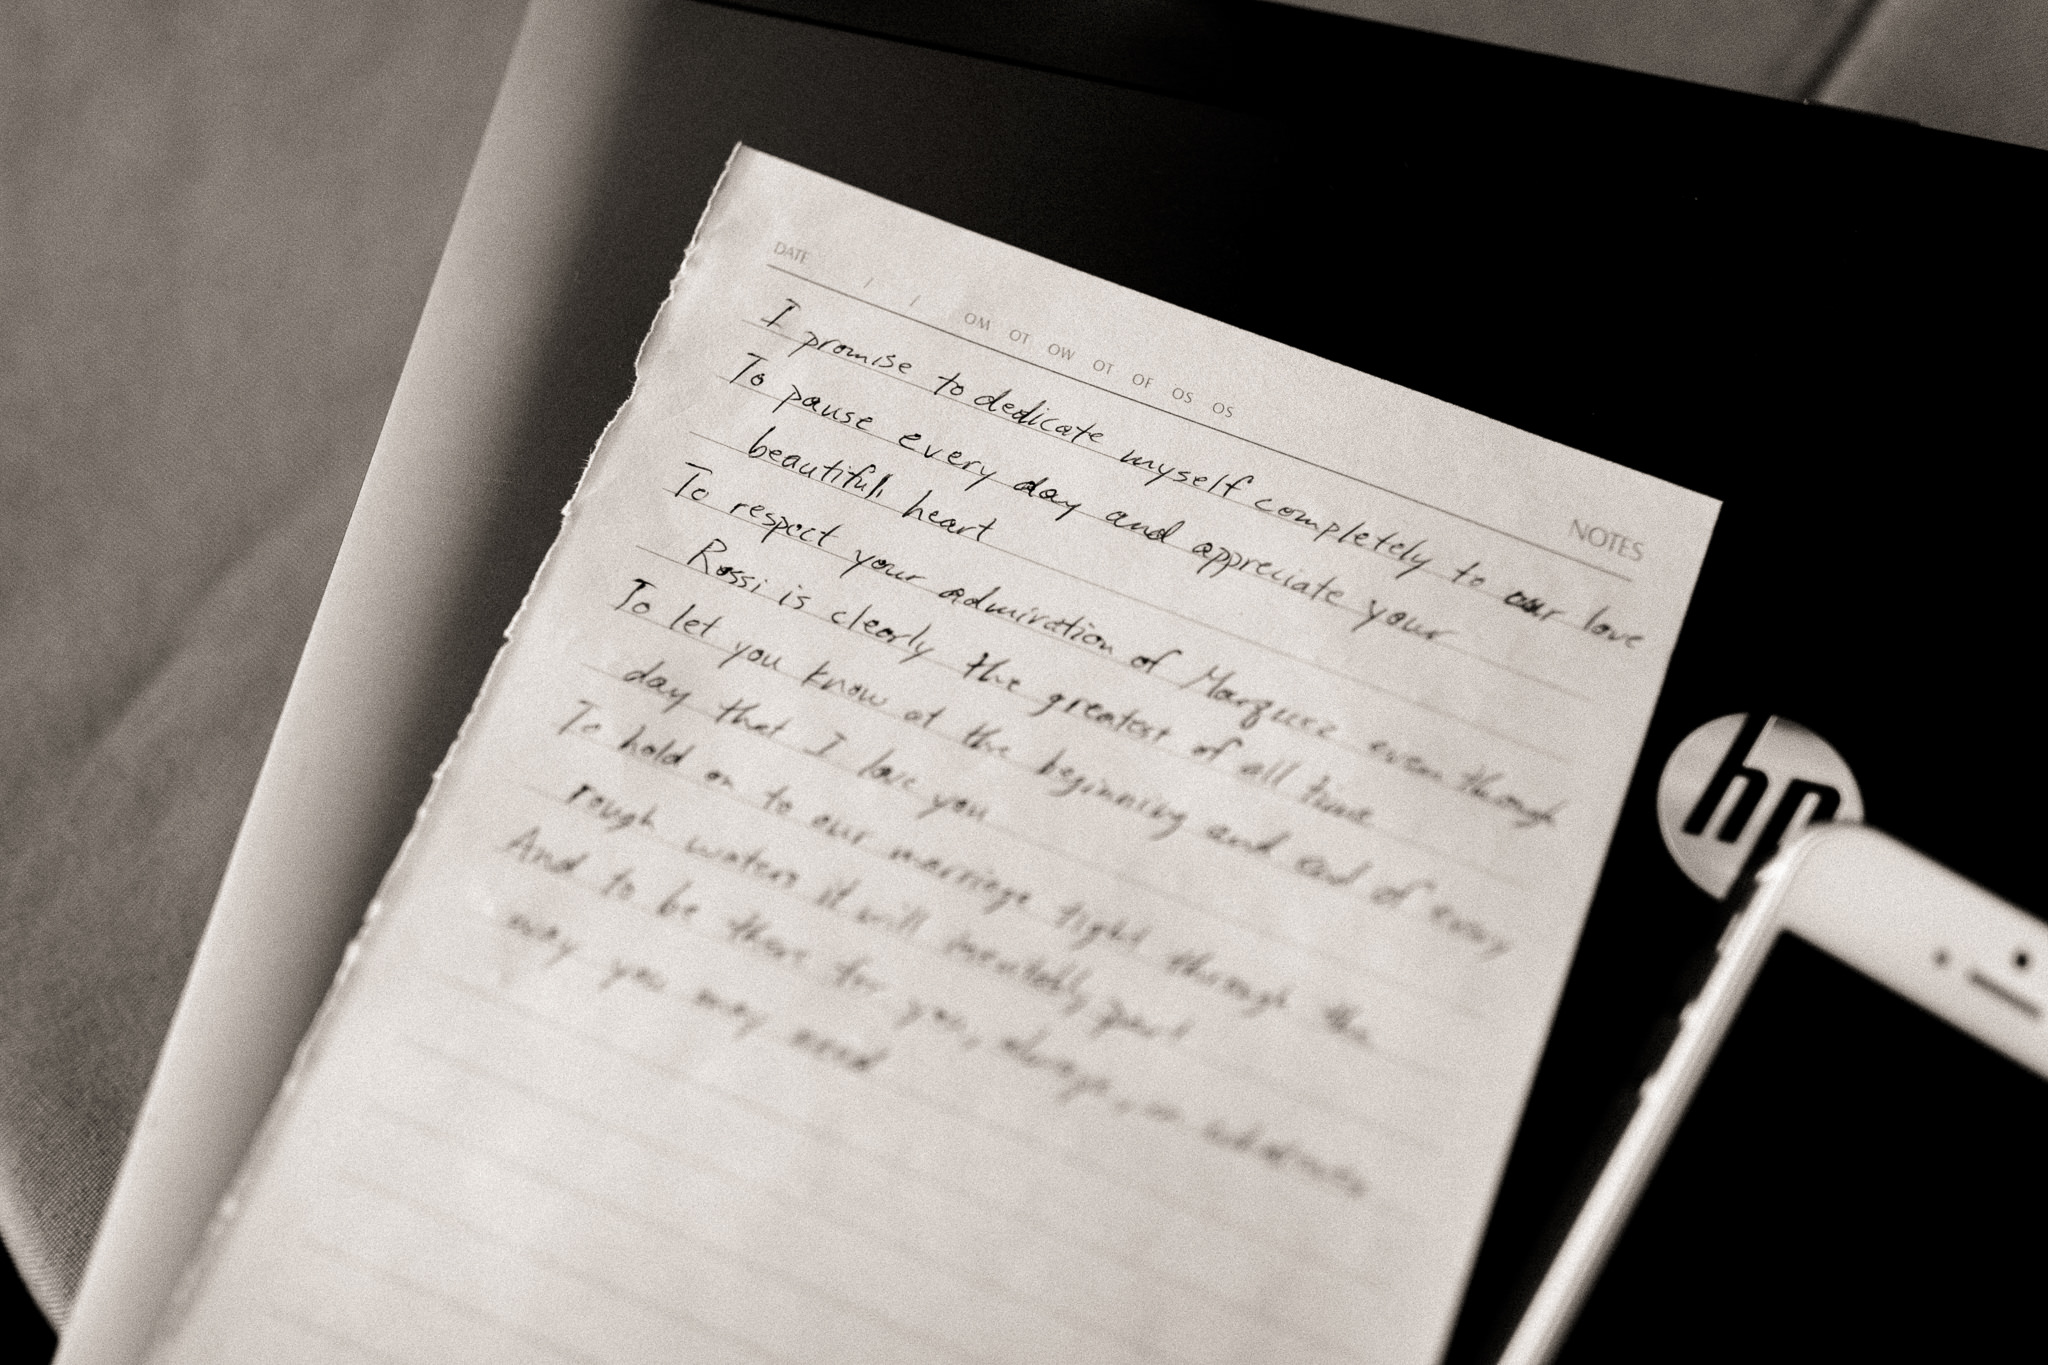 DATE / / OM OT OW OT OF OS OS
NOTES
I promise to dedicate myself completely to our love
To pause every day and appreciate your
beautiful heart
To respect your admiration of Marquez even though
Rossi is clearly the greatest of all time
To let you know at the beginning and end of every
day that I love you
To hold on to our marriage tight through the
rough waters it will inevitably part
And to be there for you, always, in whatever
way you may need
hp